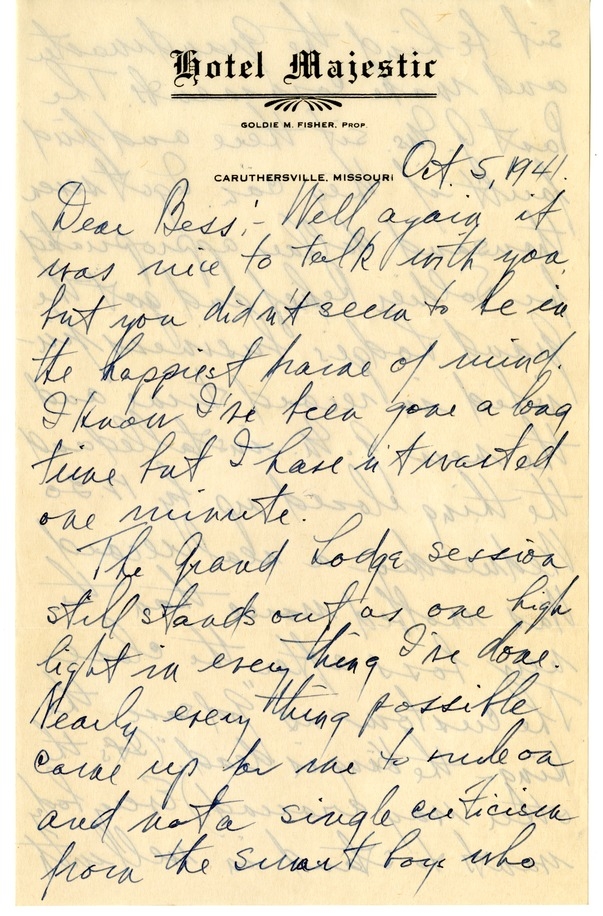 Hotel Majestic
GOLDIE M. FISHER, PROP.
CARUTHERSVILLE, MISSOURI
Oct. 5, 1941.
Dear Bess:- Well again it
was nice to talk with you,
but you didn't seem to be in
the happiest frame of mind.
I know I've been gone a long
time but I haven't wasted
one minute.
The Grand Lodge session
still stands out as one high
light in every thing I've done.
Nearly every thing possible
came up for me to rule on
and not a single criticism
from the smart boys who